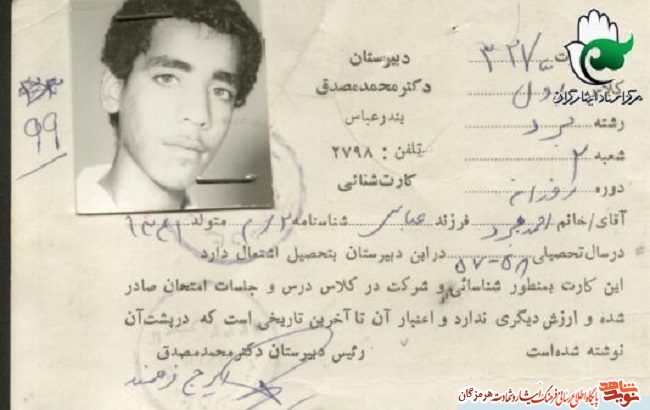 دبیرستان
دکتر محمد مصدق
بندرعباس
تلفن : ۲۷۹۸
کارت شنائی
۳۲۷
کلاس اول
رشته
شعبه ۲
دوره روزانه
۹۹
مرکز اسناد ایثارگران
آقای/خانم احمد فرزند عباس شناسنامه متولد ۱۳۴۱
درسال تحصیلی ۵۷-۵۸ دراین دبیرستان بتحصیل اشتغال دارد
این کارت بمنظور شناسائی و شرکت در کلاس درس و جلسات امتحان صادر
شده و ارزش دیگری ندارد و اعتبار آن تا آخرین تاریخی است که درپشت آن
نوشته شده است رئیس دبیرستان دکتر محمد مصدق
ایرج
نوید شاهد
پایگاه اطلاع رسانی فرهنگ ایثار و شهادت هرمزگان